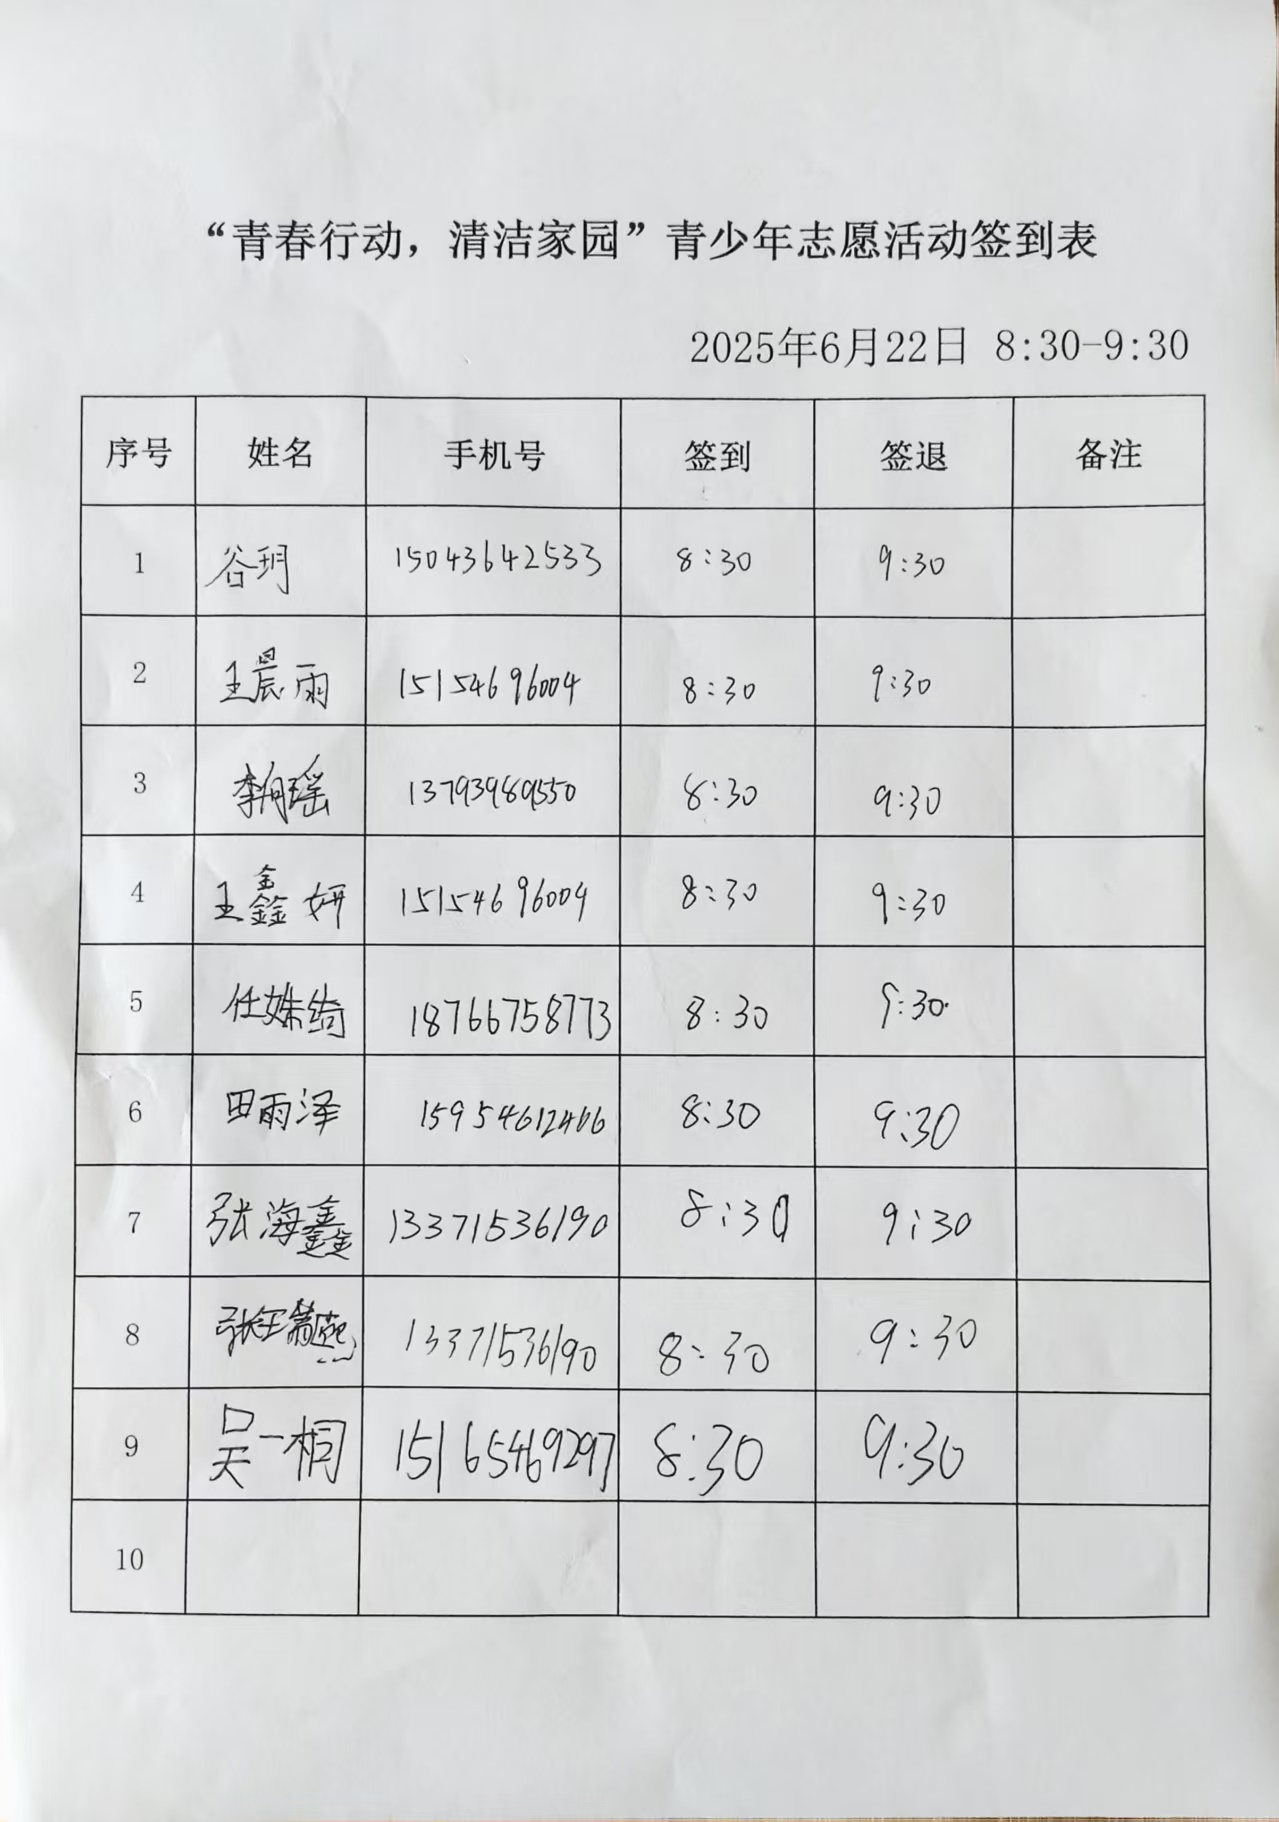 “青春行动，清洁家园”青少年志愿活动签到表
2025年6月22日 8:30-9:30
序号 姓名 手机号 签到 签退 备注
1 谷玥 15043642533 8:30 9:30
2 王晨雨 15154696004 8:30 9:30
3 13793989550 8:30 9:30
4 王鑫妍 15154696004 8:30 9:30
5 任姝绮 18766758773 8:30 9:30
6 田雨泽 15954612466 8:30 9:30
7 张海鑫 13371536190 8:30 9:30
8 13371536190 8:30 9:30
9 吴一桐 15165469297 8:30 9:30
10